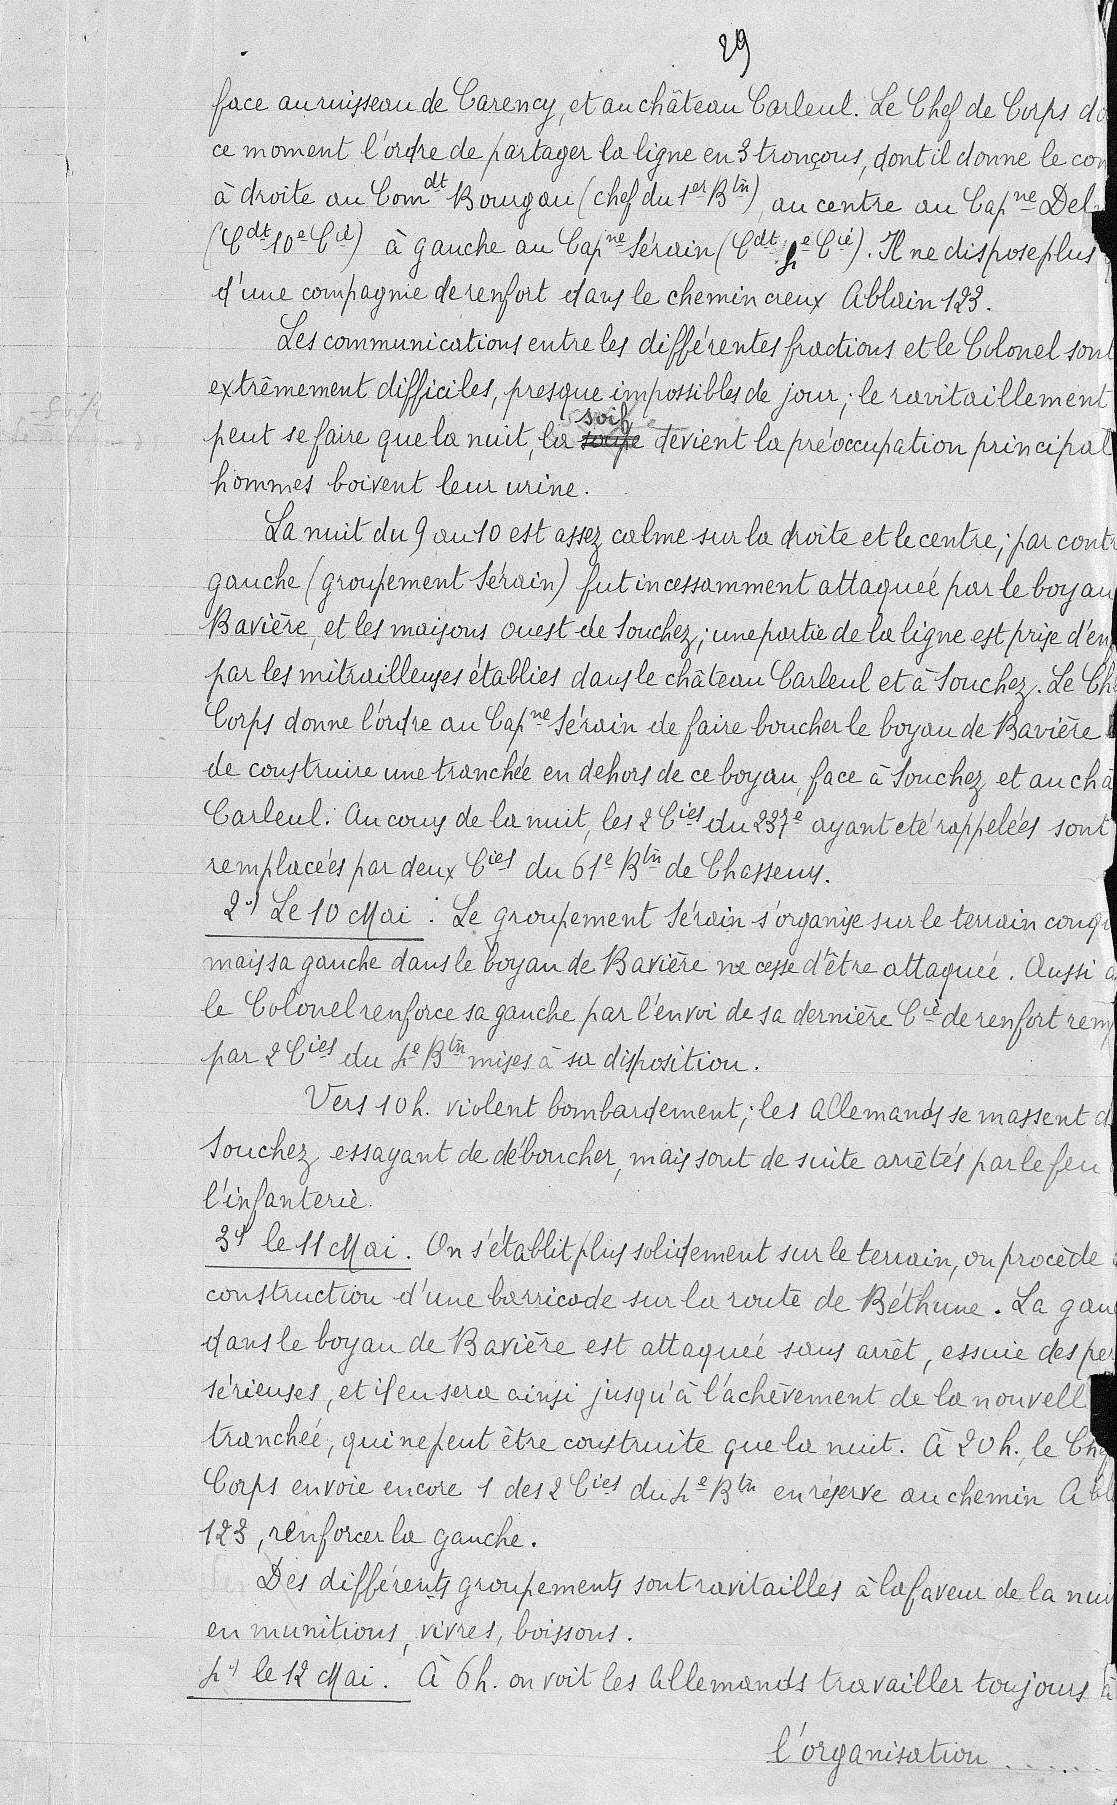 29
face au ruisseau de Carency, et au château Carleul. Le Chef de Corps do
ce moment l'ordre de partager la ligne en 3 tronçons, dont il donne le com
à droite au Comdt Bourgau (chef du 1er Btn), au centre au Capne Del
(Cdt 10e Cie) à gauche au Capne Sérain (Cdt 4e Cie). Il ne dispose plus
d'une compagnie de renfort dans le chemin creux Ablain 123.
Les communications entre les différentes fractions et le Colonel sont
extrêmement difficiles, presque impossibles de jour; le ravitaillement
peut se faire que la nuit, la soupe soif devient la préoccupation principal
hommes boivent leur urine.
La nuit du 9 au 10 est assez calme sur la droite et le centre; par contr
gauche (groupement Sérain) fut incessamment attaquée par le boyau
Bavière, et les maisons ouest de Souchez; une partie de la ligne est prise d'en
par les mitrailleuses établies dans le château Carleul et à Souchez. Le Ch
Corps donne l'ordre au Capne Sérain de faire boucher le boyau de Bavière
de construire une tranchée en dehors de ce boyau, face à Souchez, et au châ
Carleul. Au cours de la nuit, les 2 Cies du 237e ayant été rappelées sont
remplacées par deux Cies du 61e Btn de Chasseurs.
2°) Le 10 Mai : Le groupement Sérain s'organise sur le terrain conqu
mais sa gauche dans le boyau de Bavière ne cesse d'être attaquée. Aussi
le Colonel renforce sa gauche par l'envoi de sa dernière Cie de renfort remp
par 2 Cies du 4e Btn mises à sa disposition.
Vers 10h. violent bombardement; les Allemands se massent d
Souchez, essayant de déboucher, mais sont de suite arrêtés par le feu
l'infanterie.
3°) le 11 Mai. On s'établit plus solidement sur le terrain, on procède à
construction d'une barricade sur la route de Béthune. La gau
dans le boyau de Bavière est attaquée sans arrêt, essuie des per
sérieuses, et il en sera ainsi jusqu'à l'achèvement de la nouvell
tranchée, qui ne peut être construite que la nuit. À 20h. le Che
Corps envoie encore 1 des 2 Cies du 4e Btn en réserve au chemin Abl
123, renforcer la gauche.
Des différents groupements sont ravitaillés à la faveur de la nui
en munitions, vivres, boissons.
4°) le 12 Mai. À 6h. on voit les Allemands travailler toujours à
l'organisation ......